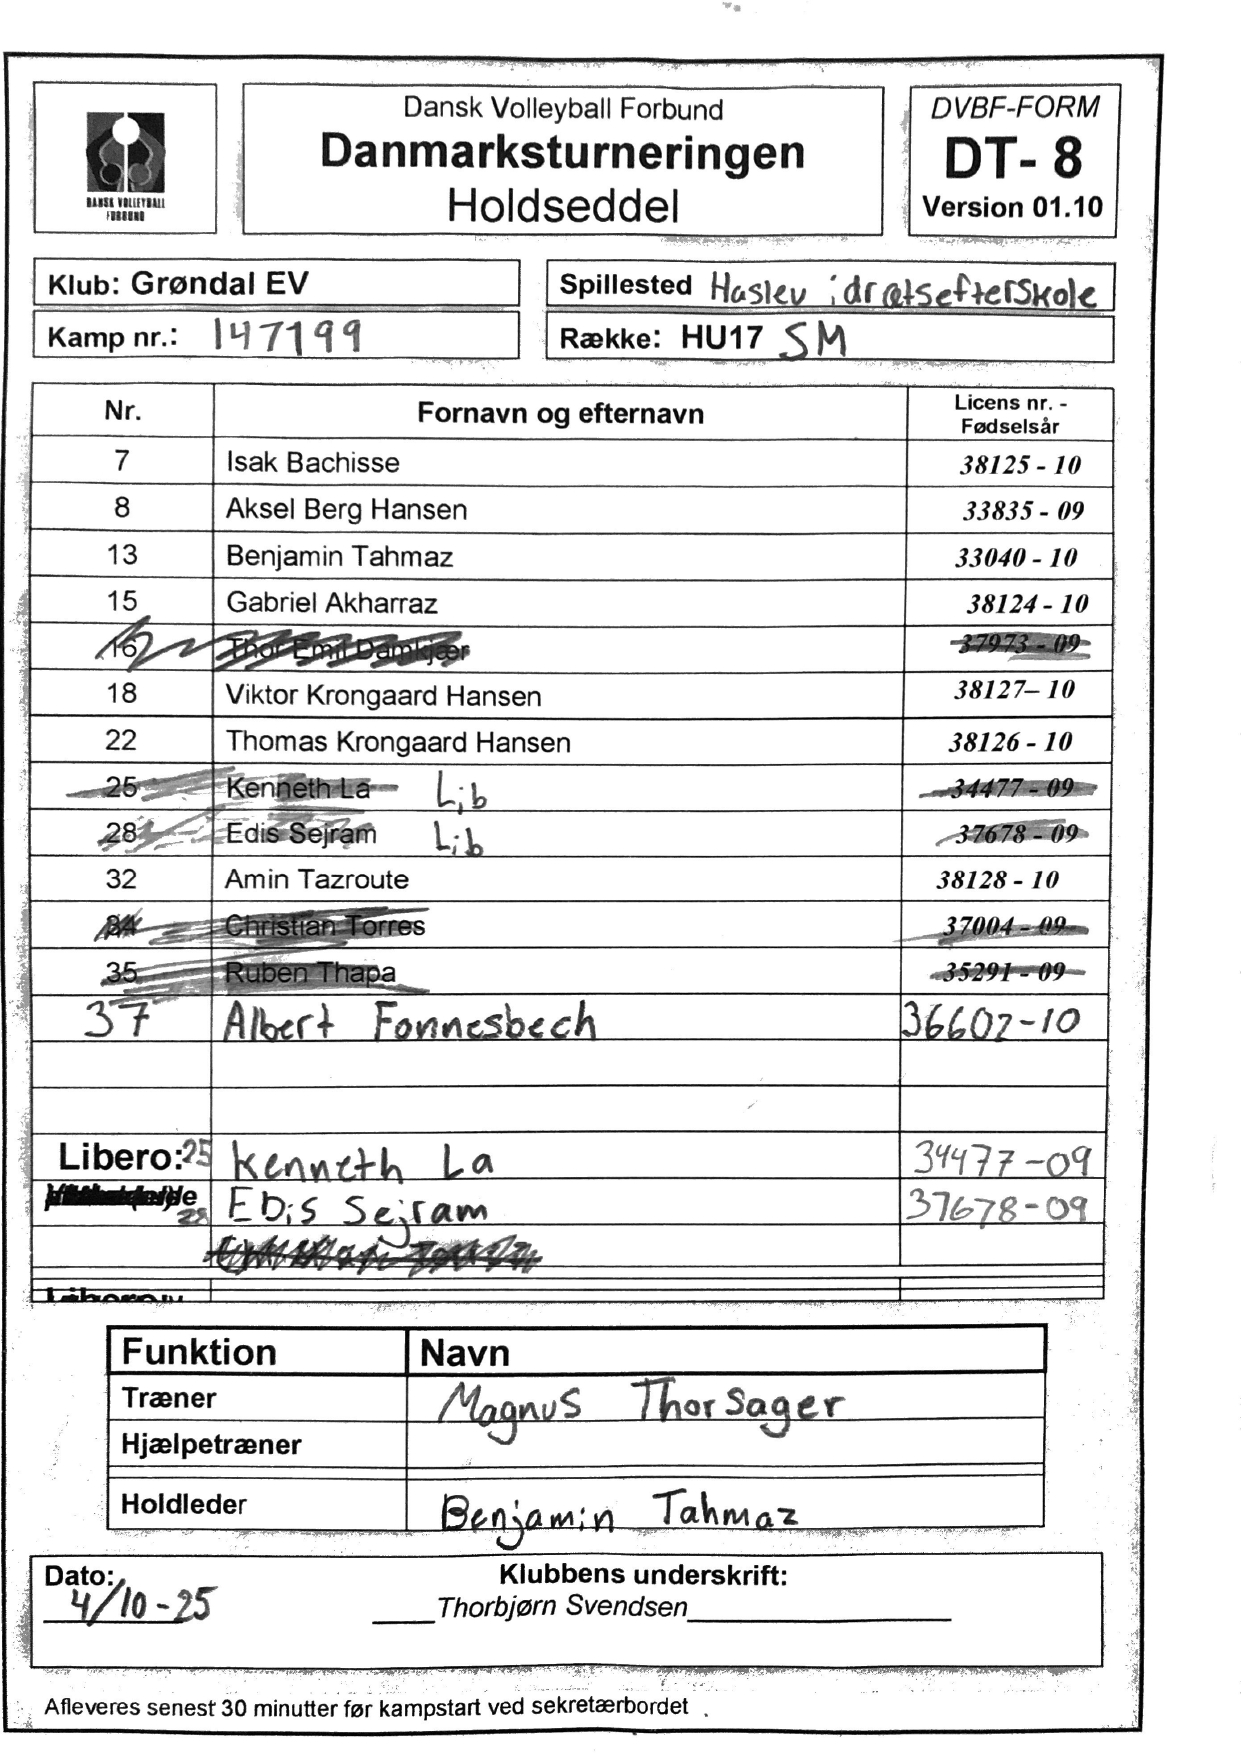 DANSK VOLLEYBALL
FORBUND
Dansk Volleyball Forbund
Danmarksturneringen
Holdseddel
DVBF-FORM
DT- 8
Version 01.10
Klub: Grøndal EV
Spillested Haslev idrætsefterskole
Kamp nr.: 147199
Række: HU17 SM
Nr. Fornavn og efternavn Licens nr. -
Fødselsår
7 Isak Bachisse 38125 - 10
8 Aksel Berg Hansen 33835 - 09
13 Benjamin Tahmaz 33040 - 10
15 Gabriel Akharraz 38124 - 10
16 Thor Emil Damkjær 37973 - 09
18 Viktor Krongaard Hansen 38127– 10
22 Thomas Krongaard Hansen 38126 - 10
25 Kenneth La Lib 34477 - 09
28 Edis Sejram Lib 37678 - 09
32 Amin Tazroute 38128 - 10
34 Christian Torres 37004 - 09
35 Ruben Thapa 35291 - 09
37 Albert Fonnesbech 36602-10
Libero: 25 Kenneth La 34477-09
28 EDis Sejram 37678-09
Funktion Navn
Træner Magnus Thorsager
Hjælpetræner
Holdleder Benjamin Tahmaz
Dato: Klubbens underskrift:
4/10-25 Thorbjørn Svendsen
Afleveres senest 30 minutter før kampstart ved sekretærbordet .